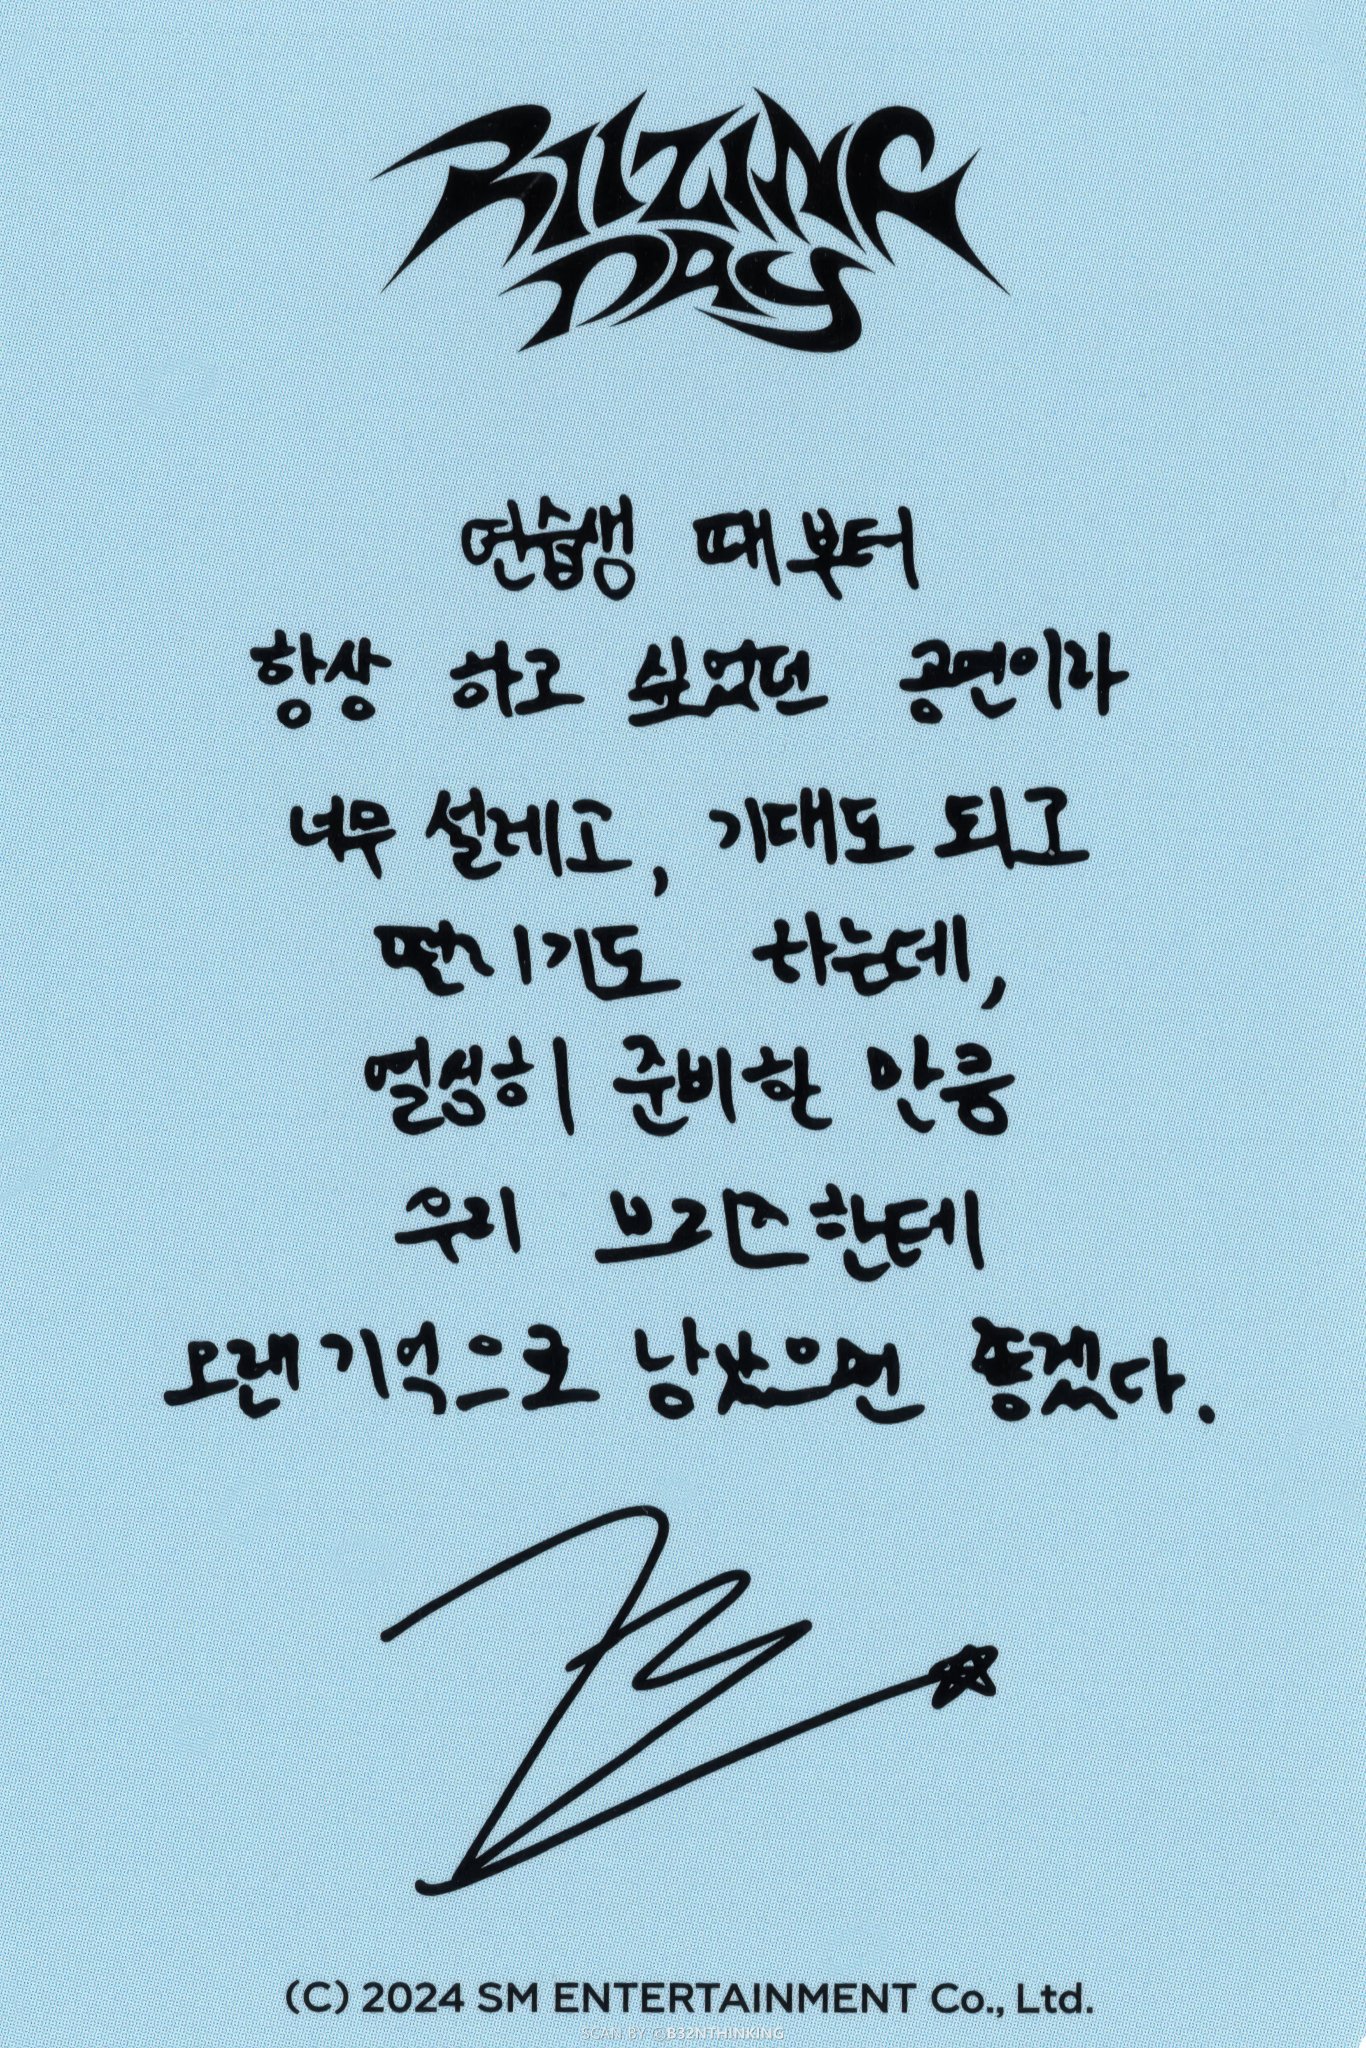 RIIZING
DAY
연습생 때부터
항상 하고 싶었던 공연이라
너무 설레고, 기대도 되고
떤기기도 하는데,
열심히 준비한 만큼
우리 브리즈한테
오랜 기억으로 남았으면 좋겠다.
(C) 2024 SM ENTERTAINMENT Co., Ltd.
SCAN BY @B32NTHINKING